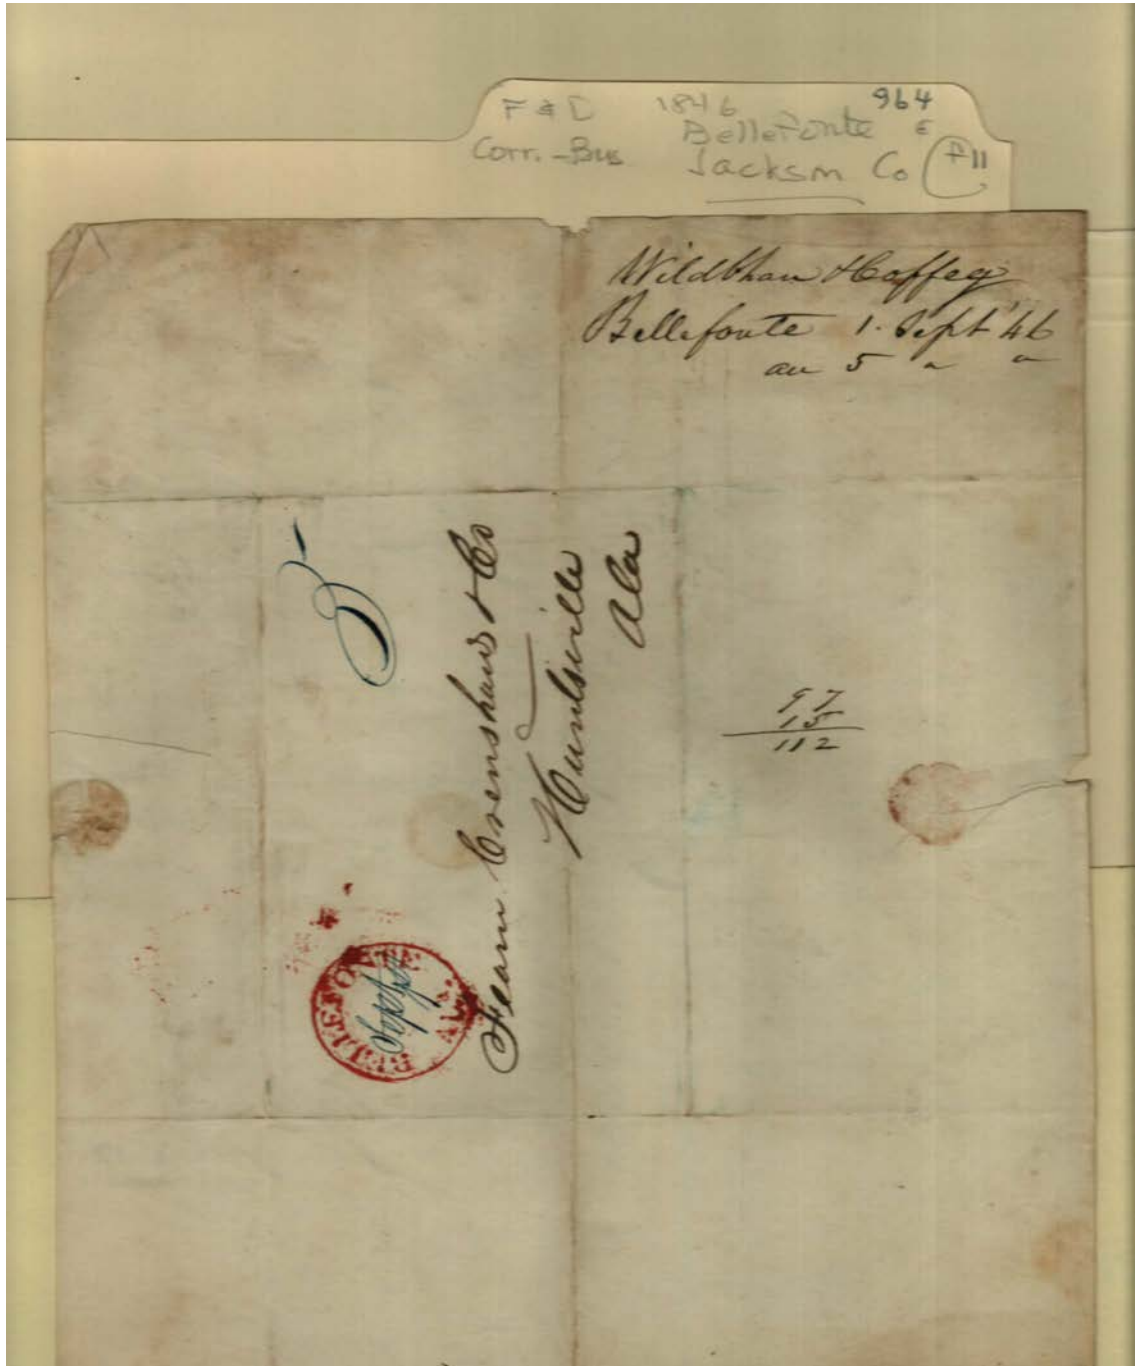 F & D 1846 964
Corr.-Bus. Bellefonte E
Jackson Co F11
Coffey
Bellefonte 1. Sept '46
5 " "
5
Fearn Crenshaw & Co
Huntsville
Ala
97
15
112
BELLEFONTE
Sept
ALA.